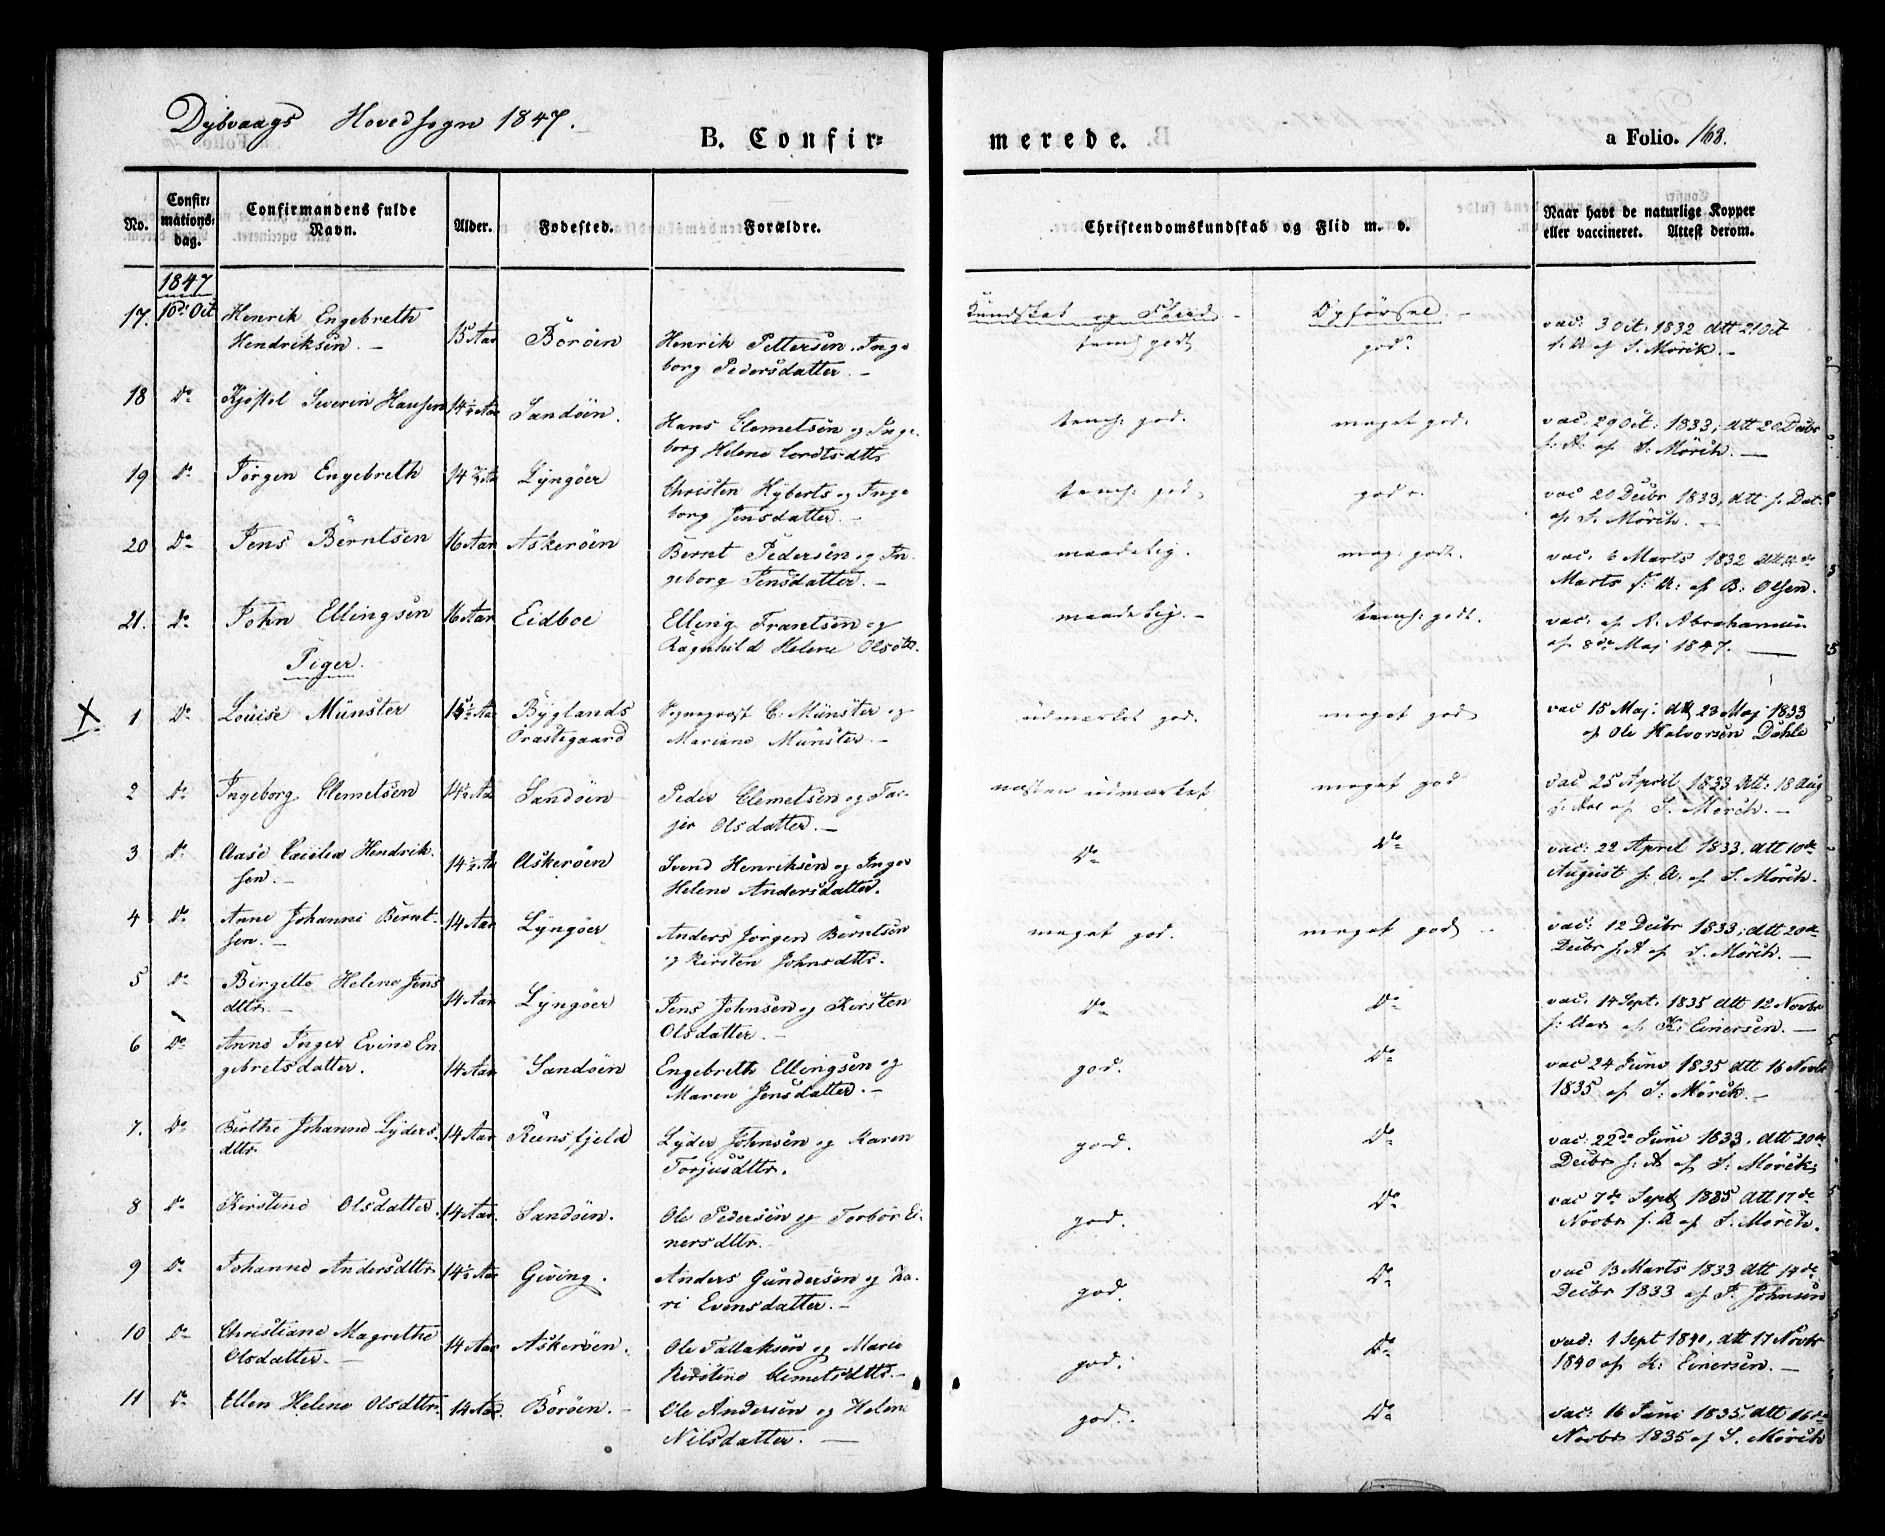 Dybvaags Hovedsogn 1847.
B. Confir=
merede.
a Folio. 163.
No.
Confir=
mations=
dag.
Confirmandens fulde
Navn.
Alder.
Fødested.
Forældre.
Christendomskundskab og Flid m. v.
Naar havt de naturlige Kopper
eller vaccineret. Attest derom.
1847
Kundskab og Flid - Opførsel. -
17. 10de Oct Henrik Engebreth
Hendriksen. - 15 Aar Boröen Henrik Pettersen. Inge
borg Pedersdatter. - temt godt god. vac: 3 Oct: 1832 att 21 Oct
s: A af S. Mörch. -
18 Do Kjöstel Severin Hansen 14½ Aar Sandöen. Hans Clemetsen og Inge-
borg Helene temt: god. meget god. vac: 29 Oct: 1833, att 20 Decbr
s: A. af S. Mörch. -
19 Do Jörgen Engebreth 14 Aar Lyngöer Christen Hyberts og Inge
borg Jensdatter. - temt: god. god. vac 20 Decbr 1833, att s. Dat.
af S. Mörch. -
20 Do Jens Berntsen 16 Aar Askeröen Bernt Pedersen og In
geborg Jensdatter. - maadelig. meg: godt. vac: 6 Marts 1832 att
Marts s: A: af B: Olsen.
21. Do John Ellingsen 16 Aar Eidboe Elling Frantsen og
Ragnhild Helene Olsdtt. maadelig. - temt: godt. vac. af A. Abrahamsen
af 8de Maj 1847. -
Piger.
X 1 Do Louise Münster 15½ Aar Byglands
Præstegaard Sognepræst C. Münster og
Mariane Münster. - udmærket god. meget god vac 15 Maj: att 23 Maj 1833
af Ole Halvorsen Dahle
2 Do Ingeborg Clemetsen 14½ Aar Sandöen Peder Clemetsen og Tar-
jer Olsdatter. - næsten udmærket meget god vac 25 April 1833 att: 18 Aug
s: Aar af S. Mörch. -
3 Do Aase Cæcilia Hendrik-
sen. - 14½ Aar Askeröen Svend Henriksen og Inger
Helene Andersdatter. Do Do vac: 22 April 1833. att 10de
August s: A. af S. Mörch.
4 Do Anne Johanne Bernt-
sen. - 14 Aar Lyngöer Anders Jörgen Berntsen
og Kirsten Johnsdttr. meget god. meget god - vac: 12 Decbr 1833, att 20de
Decbr s: A af S. Mörch. -
5 Do Birgitte Helene Jens
dttr. - 14 Aar Lyngöer Jens Johnsen og Kirsten
Olsdatter. - Do Do vac. 14 Sept. 1835 att 12 Novbr
s: Aar af K. Einersen. -
6 Do Anne Inger Evine En
gebretsdatter. 14 Aar Sandöen Engebreth Ellingsen og
Maren Jensdatter. - god. Do vac 24 Juni 1835 att 16 Novbr
1835 af S: Mörch. -
7. Do Birthe Johanne Lyders-
dttr 14 Aar Reinsfjeld Lyder Johnsen og Karen
Torjusdttr. god. Do vac: 22de Juni 1833. att 20de
Decbr s: A af S: Mörch.
8 Do Kirstine Olsdatter 14 Aar. Sandöen. Ole Pedersen og Torbor Ei-
nersdttr. god. Do vac 7de Sept 1835 att 17de
Novbr s. A af S. Mörch.
9 Do Johanne Andersdttr 14½ Aar Giving. Anders Gundersen og Ka-
ri Evensdatter. - god. Do vac 13 Marts 1833 att 14de
Decbr 1833 af P. Johnsen
10 Do Christiane Magrethe
Olsdatter. - 14 Aar Askeröen. Ole Tallaksen og Marie
Kirstine Clemetsdttr. - god. Do vac: 1 Sept 1840, att 17 Novbr
1840 af K: Einersen. -
11 Do Ellen Helene Olsdttr. 14 Aar. Boröen. - Ole Andersen og Helene
Nilsdatter. - god. Do vac: 16 Juni 1835, att 16de
Novbr 1835 af S. Mörch